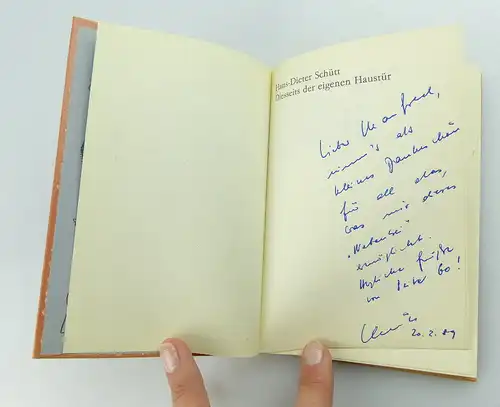 Hans-Dieter Schütt
Diesseits der eigenen Haustür
Lieber Manfred,
nimm's als
kleines Dankeschön
für all das,
was mir dieses
ermöglicht.
Herzliche Grüße
von
20.2.89